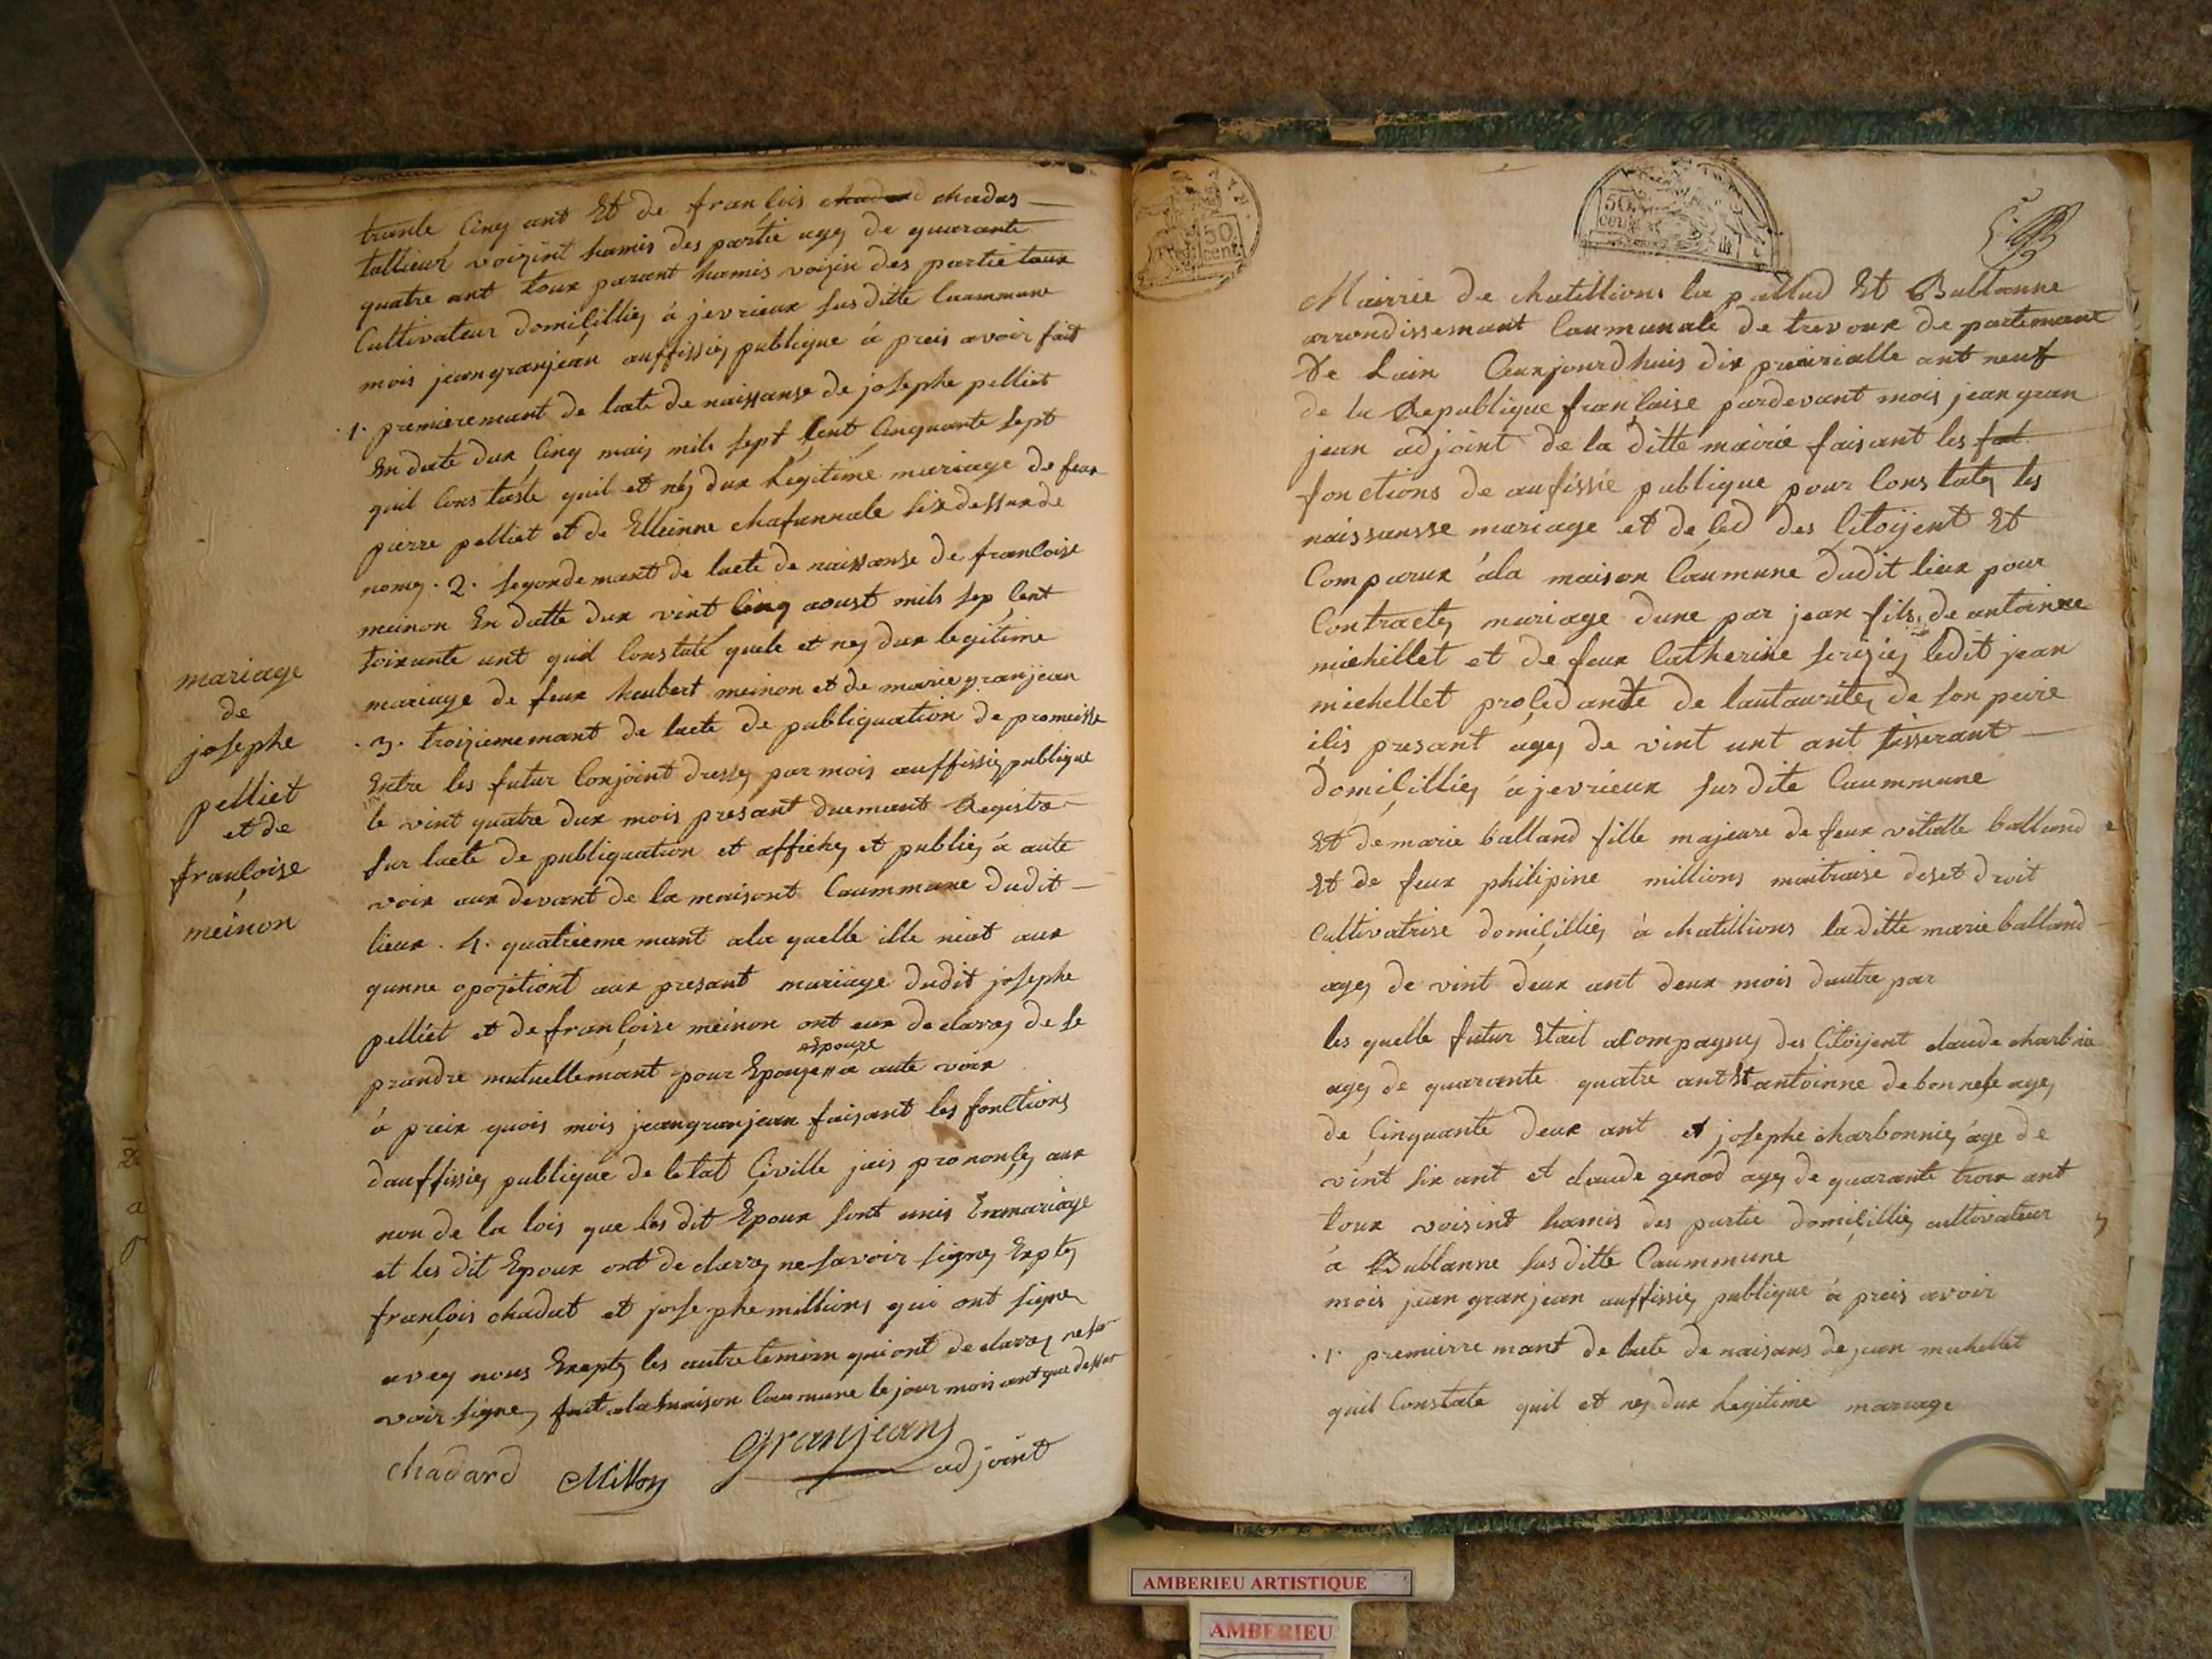 trante Cinq ant Et de francois chadard chadas
tallieur voizint hamis des partie agez de quarante
quatre ant toux parant hamis voizin des partie toux
Cultivateur domicilliez à jevrieux sus ditte Coummune
mois jean granjean auffissiez publique à preis avoir fait
.1. premieremant de lacte de naissanse de josephe pelliet
En date dux Cinq mais mils sept Cent Cinquante sept
quil Constaste quil et nez dux Legitime mariage de feux
pierre pelliet et de Elleinne chafannale six dessux de
nomez . 2. segondemant de lacte de naissanse de francoise
meinon En datte dux vint Cinq aoust mils sep Cent
soixante ant quil Constate quele et nez dux legitime
mariage de feux heubert meinon et de marie granjean
.3. troiziememant de lacte de publiquation de promeisse
Entre les futur Conjoint dressez par mois auffissiez publique
le vint quatre dux mois presant duemant Registre
sur lacte de publiquation et affichez et publiez à aute
voix aux devant de la maisont Coummune dudit
lieux . 4. quatriememant ala quelle ille niat aux
qunne opozitiont aux presant mariage dudit josephe
pelliet et de françoise meinon ont eux declarez de se
espouze
prandre mutuellemant pour Epouze a aute voix
à preix quois mois jean granjean faisant les fonctions
dauffissiez publique de letat Civille jais prononcez aux
non de la lois que les dit Epoux sont unis Enmariage
et les dit Epoux ont declarez ne savoir signez Exptez
françois chadat et josephe millions qui ont signez
avez nous Exeptez les autre temoin qui ont declarez ne sa
voir signez fait ala maison Coummune le jour mois ant que dessus
chadard Millon granjeans
adjoint
mariage
de
josephe
pelliet
et de
francoise
meinon
50
cent
50
cent
Mairie de chatillions la pallud Et Bublanne
arrondissemant Coumunale de trevoux departemant
De Lain Ceuxjourdhuis dix preirialle ant neuf
de la Republique françoise pardevant mois jean gran
jean adjoint de la ditte mairie faisant les font
fonctions de aufissié publique pour Constatez les
naissansse mariage et deled des Citoijent Et
Comparux àla maison Coumune dudit lieux pour
Contractez mariage dune par jean fils de antoinne
miehillet et de feux Catherine serizie ledit jean
miehellet procedante de lautaurite de son peire
ilis presant agez de vint unt ant tisserant
domicilliez à jevrieux sus dite Coummune
Et de marie balland fille majeure de feux vitalle balland
Et de feux philipine millions maitraise deset droit
Cultivatrise domicilliez à chatillions la ditte marie balland
agez de vint deux ant deux mois dautre par
les quelle futur Etait acompagnez des Citoijent claude charbnie
agez de quarante quatre ant Et antoinne debonnele agez
de Cinquante deux ant et josephe charbonniez àge de
vint six ant et claude genod agez de quarante troix ant
toux voisint hamis des partie domicilliez cultivateur
à Bublanne sus ditte Coummune
mois jean granjean auffissiez publique à preis avoir
.1. premierre mant de lacte de naisans de jean michellet
quil Constate quil et nez dux Legitime mariage
AMBERIEU ARTISTIQUE
AMBERIEU